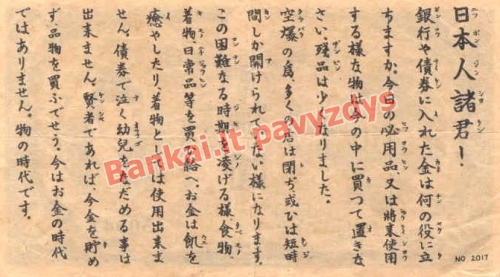 日本人諸君!
銀行や債券に入れた金は何の役に立
ちますか。今日の必用品、又は将来使用
する様な物は今の中に買つて置きな
さい。残品は少くなりました。
空爆の為、多くの店は閉ぢ或ひは短時
間しか開けられてゐない様になります。
この困難なる時期を凌げる様、食物、
着物、日常品等を買ひ給へ、お金は飢を
癒やしたり、着物としては使用出来ま
せん。債券で泣く幼児をなだめる事は
出来ません。賢者であれば、今金を貯め
ず品物を買ふでせう。今はお金の時代
ではありません。物の時代です。
NO 2017
Bankai.lt pavyzdys